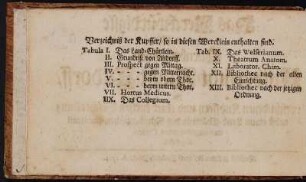 Verzeichniß der Kupffer/ so in diesen Wercklein enthalten sind.
Tabula I. Das Land-Gärtlein.
II. Grundriß von Altdorff.
III. Prospect gegen Mittag.
IV. - - - gegen Mitternacht.
V. - - - beym obern Thor.
VI. - - - beym untern Thor.
VII. Hortus Medicus.
IIX. Das Collegium.
Tab. IX. Das Welserianum.
X. Theatrum Anatom.
XI. Laborator. Chim.
XII. Bibliothec nach der alten
Einrichtung.
XIII. Bibliothec nach der jetzigen
Ordnung.